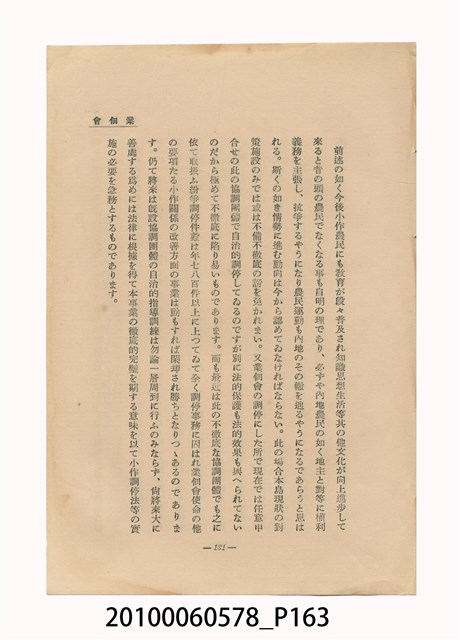 業佃會
前述の如く今後小作農民にも敎育が段々普及され知識思想生活等其の他文化が向上進步して
來ると昔の頭の農民でなくなる事も自明の理であり、必ずや內地農民の如く地主と對等に權利
義務を主張し、抗爭するやうになり農民運動も內地のその轍を廻るやうになるであらうと思は
れる。斯くの如き情勢に進む動向は今から認めてゐなければならない。此の場合本島現狀の對
策施設のみでは或は不備不徹底の謗を免かれまい。又業佃會の調停にした所で現在では任意申
合せの此の協調團體で自治的調停してゐるのですが別に法的保護も法的效果も與へられてない
のだから極めて不徹底に陷り易いものであります。而も最近は此の不徹底な協調團體でも之に
依て取扱ふ紛爭調停件數は年七八百件以上に上つてゐて全く調停事務に囚はれ業佃會使命の他
の要項たる小作關係の改善方面の事業は動もすれば閑却され勝ちとなりつゝあるのでありま
す。仍て將來は旣設協調團體の自治的指導訓練は勿論一層周到に行ふのみならず、尙將來大に
善處する爲めには法律に根據を得て本事業の徹底的完璧を期する意味を以て小作調停法等の實
施の必要を急務とするものであります。
— 131 —
20100060578_P163